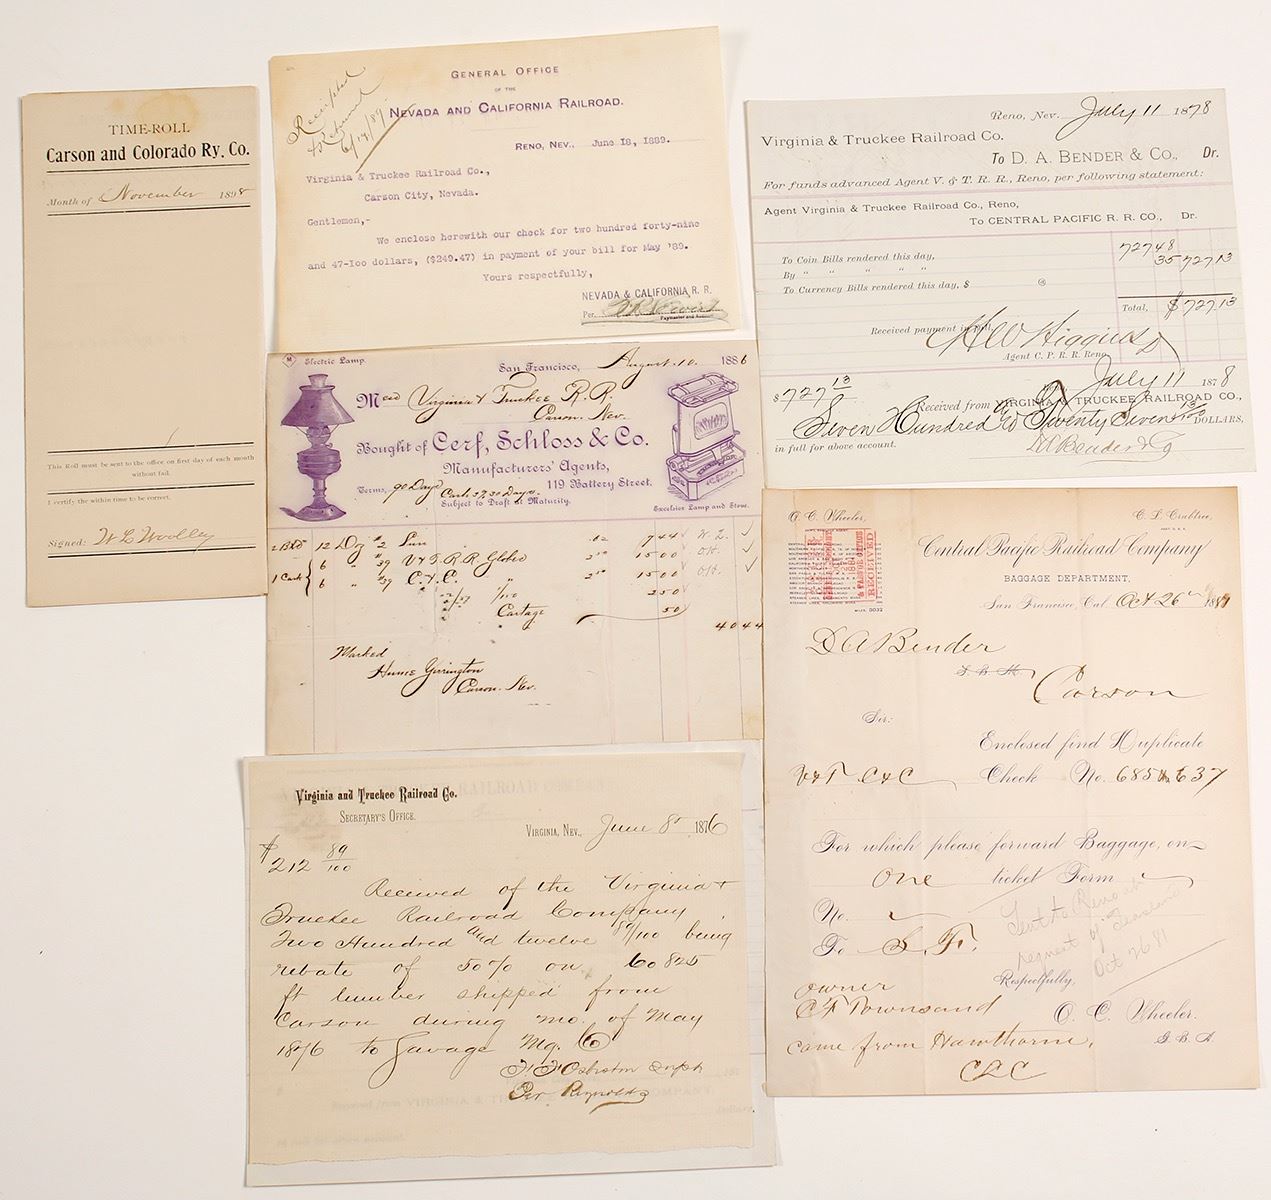 TIME-ROLL
Carson and Colorado Ry. Co.
Month of November 1898
This Roll must be sent to the office on first day of each month
without fail.
I certify the within time to be correct.
Signed: W L Woolley
GENERAL OFFICE
OF THE
NEVADA AND CALIFORNIA RAILROAD.
Receipted
& Returned
6/19/89
RENO, NEV., June 18, 1889.
Virginia & Truckee Railroad Co.,
Carson City, Nevada.
Gentlemen,-
We enclose herewith our check for two hundred forty-nine
and 47-100 dollars, ($249.47) in payment of your bill for May '89.
Yours respectfully,
NEVADA & CALIFORNIA R. R.
Per.
Paymaster and
Reno, Nev. July 11 1878
Virginia & Truckee Railroad Co.
To D. A. BENDER & CO., Dr.
For funds advanced Agent V. & T. R. R., Reno, per following statement:
Agent Virginia & Truckee Railroad Co., Reno,
To CENTRAL PACIFIC R. R. CO., Dr.
To Coin Bills rendered this day, 727 48
By " " " " " 35 727 13
To Currency Bills rendered this day, $ @
Total, $ 727 13
Received payment in full,
H W Higgins
Agent C. P. R. R. Reno
July 11 1878
$727 13 Received from VIRGINIA & TRUCKEE RAILROAD CO.,
Seven Hundred & Twenty Seven 13/100 DOLLARS,
in full for above account. D A Bender & Co
M
Electric Lamp.
San Francisco, August 10 1886
Virginia & Truckee R. R.
Carson Nev.
Bought of Cerf, Schloss & Co.
Manufacturers' Agents,
119 Battery Street.
Terms, 90 Days
Subject to Draft at Maturity.
Excelsior Lamp and Stove.
12 Doz #2 Sun .62 7 44
6 " #39 V & T. R. R. Globes 2 50 15 00
1 Cask 6 " #39 C. & C. " 2 50 15 00
2 50
Cartage 50
40 44
Marked
Hume Yerington
Carson. Nev.
O. C. Wheeler,
C. L. Crabtree,
RECEIVED
Central Pacific Railroad Company
BAGGAGE DEPARTMENT,
San Francisco, Cal. Oct 26th 1881
D A Bender
Carson
Sir:
Enclosed find Duplicate
V & T C & C Check No. 685 & 637
For which please forward Baggage, on
one ticket Form
No.
To S. F.
Sent to Reno at
request of Townsend
Oct 26 81
Respectfully,
owner
C F Townsand
O. C. Wheeler.
G. B. A.
came from Hawthorne,
C & C
Virginia and Truckee Railroad Co.
SECRETARY'S OFFICE.
VIRGINIA, NEV., June 8 1876
$212 89/100
Received of the Virginia &
Truckee Railroad Company
Two Hundred and twelve 89/100 being
rebate of 50% on 60825
ft lumber shipped from
Carson during mo. of May
1876 to Savage Mg. Co
Per Reynolds